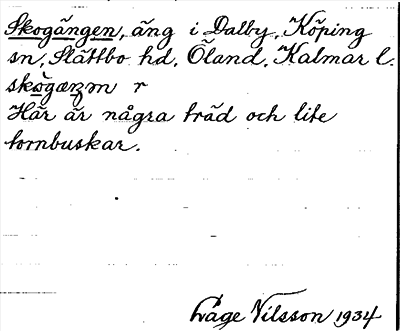 Skogängen, äng i Dalby, Köping
sn, Slättbo hd, Öland, Kalmar l.
r
Här är några träd och lite
tornbuskar.
Åge Nilsson 1934